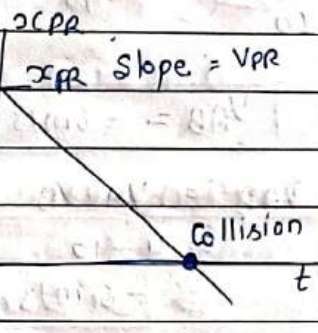 xPR
xPR Slope = VPR
Collision
t